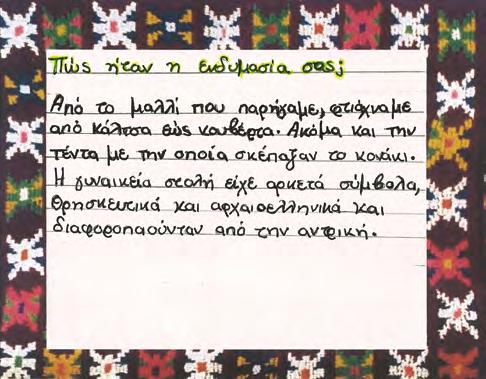 Πώς ήταν η ενδυμασία σας;
Από το μαλλί που παρήγαμε, φτιάχναμε
από κάλτσα εώς κουβέρτα. Ακόμα και την
τέντα με την οποία σκέπαζαν το κονάκι.
Η γυναικεία στολή είχε αρκετά σύμβολα,
θρησκευτικά και αρχαιοελληνικά και
διαφοροποιούνταν από την αντρική.